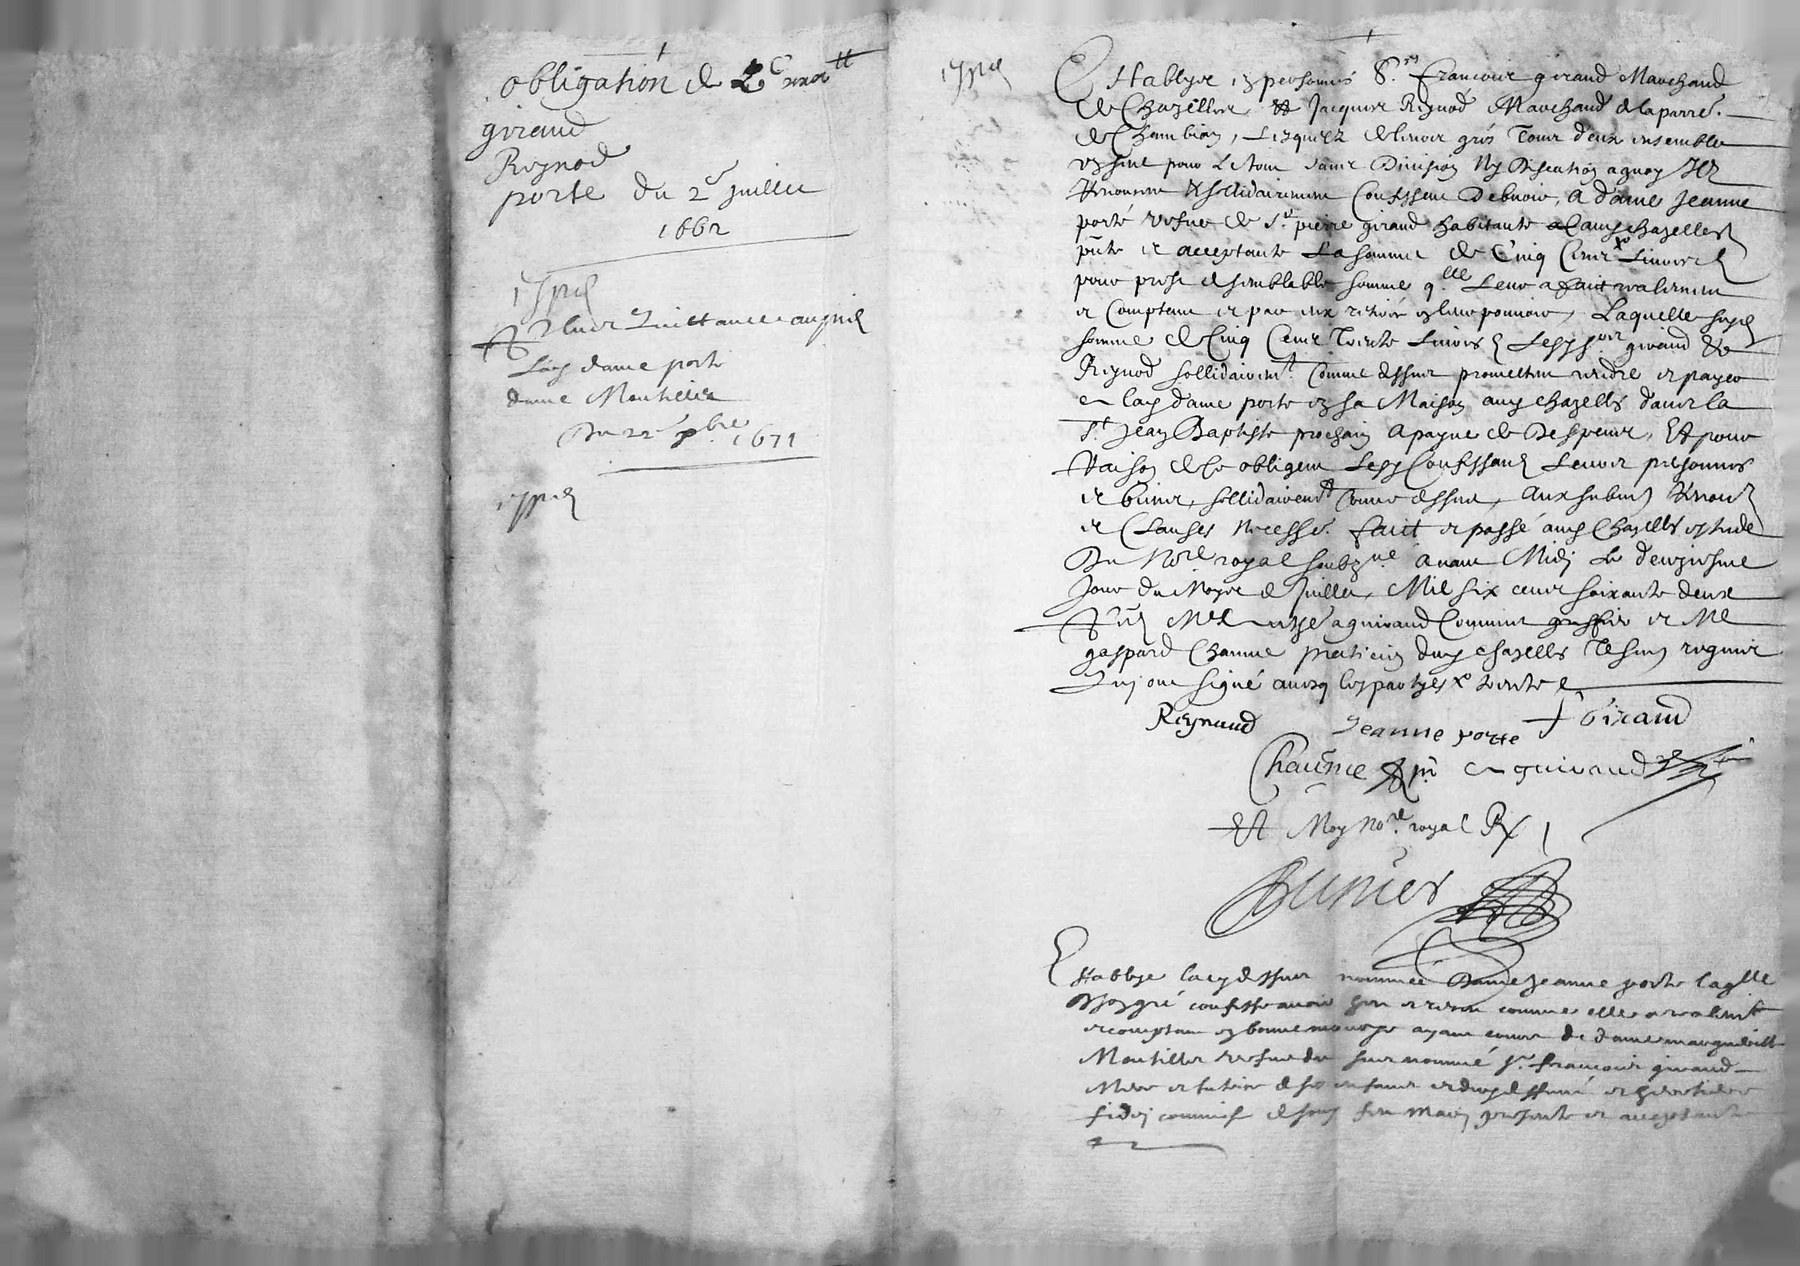 obligation de
giraud
Reynod
porte du 2e juillet
1662
Et la quittance au pied
Lad dame porte
dame Montillier
Du 22e 1671
Establys en personnes Srs francois giraud Marchand
de Chazelles et Jacques Reynod Marchand de la parre.
de Chambion, Lesquelz de leur gré tous deux ensemble
un seul pour Le tout sans Division Ny Discution a quoy Ilz
Renoncent et sollidairement Confessent Debvoir, A dame Jeanne
porté vefve de Sr pierre giraud habitante aud chazelles
pnte et acceptante La somme de Cinq Centz Livres
pour prest de semblable somme q.lle Leur a fait reallement
et Comptant et par eux retirée en leur pouvoir, Laquelle susd
somme de Cinq Centz Trente Livres Lesd giraud et
Reynod sollidairemt. Comme dessus promettent rendre et payer
a lad dame porte en sa Maison aud chazelles dans la
St Jean Baptiste prochain A payne de Despens, Et pour
Raison de ce obligent Lesd Confessans Leurs personnes
et biens, sollidairemt Comme dessus, Aux submis Renon
et Clauses necess. fait et passé aud Chazelles estude
Du Nore royal soubzne avant Midi Le deuxiesme
Jour du Moys de Juillet, Mil six centz soixante deux
giraud Commis greffier et Me
gaspard Chanue praticien dud chazelles Tesmoins requis
Qui ont signé avecq les partyes x trente
Reynaud Jeanne porte + Girand
Chanue
Et Moy Nore. royal Rx
Establye lacy dessus nommée Dame Jeanne porte laqlle
de son gré confesse avoir heu et receu comme elle a reallemt
et comptant en bonne monoye ayant cours de dame margueritte
Montillier vefve du susnommé Sr. francois giraud
Mere et tutrice de ses enfans et heritiere
fidei commise de son feu mary presente et acceptante